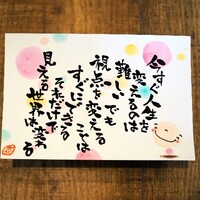 今すぐ人生を
変えるのは
難しい でも
視点を変える
ことは
すぐにできる
それだけで
見える世界は変わる